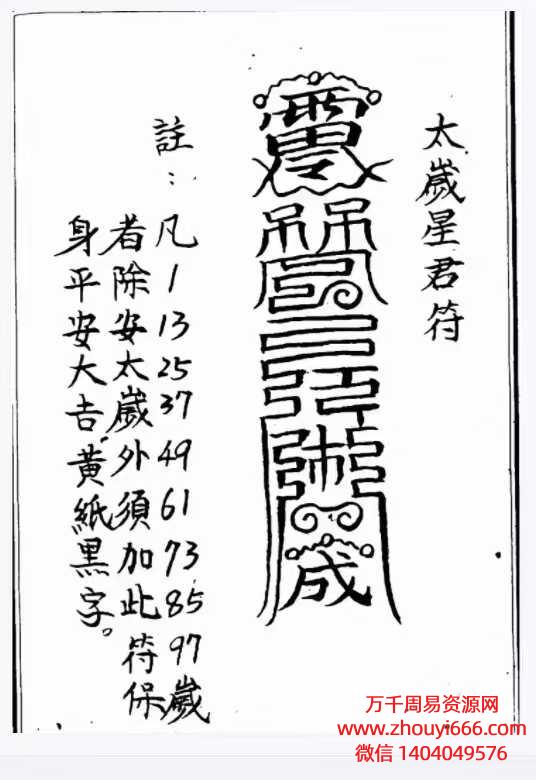 太歲星君符
註：凡1 13 25 37 49 61 73 85 97歲
者除安太歲外須加此符保
身平安大吉，黃紙黑字。
万千周易资源网
www.zhouyi666.com
微信 1404049576